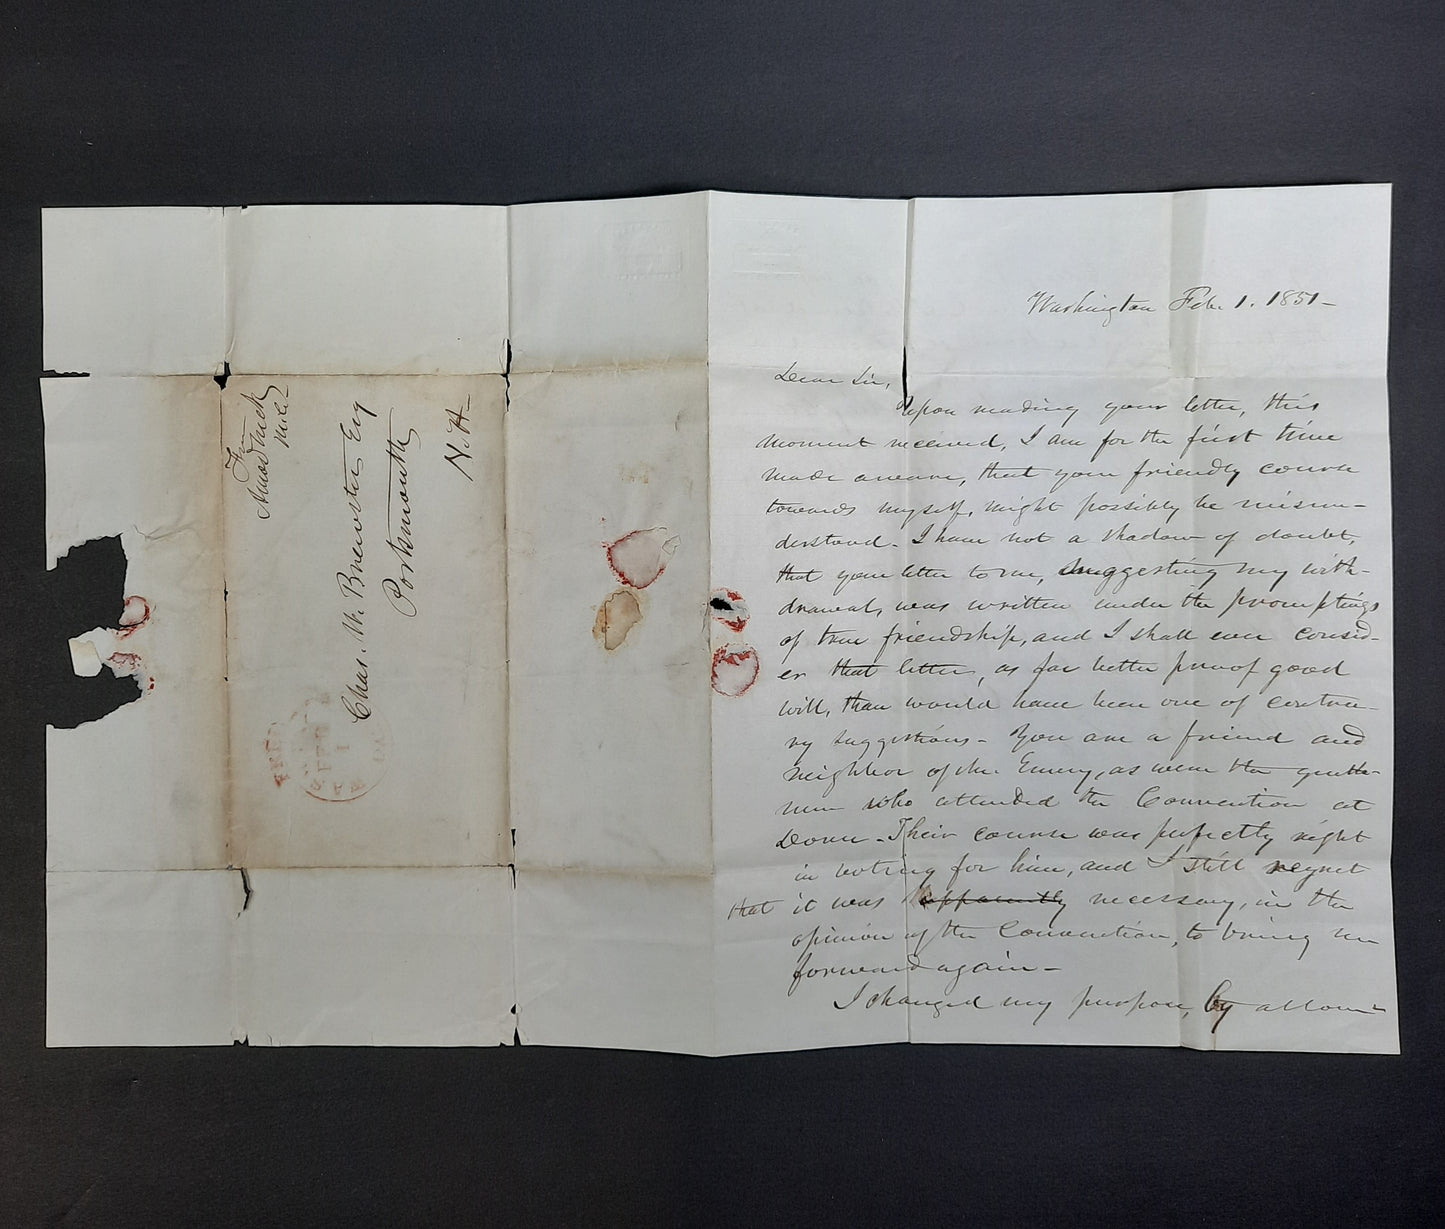 Free
Amos Tuck
M.C.
Chas. W. Brewster Esq
Portsmouth
N. H.
FREE
FEB
1
Washington Feb. 1. 1851
Dear Sir,
Upon reading your letter, this
moment received, I am for the first time
made aware, that your friendly course
towards myself, might possibly be misun-
derstood. I have not a shadow of doubt,
that your letter to me, suggesting my with-
drawal, was written under the promptings
of true friendship, and I shall ever consid-
er that letter, as far better proof of good
will, than would have been one of contra-
ry suggestions. You are a friend and
neighbor of Mr. Emery, as were the gentle-
men who attended the Convention at
Dover. Their course was perfectly right
in voting for him, and I still regret
that it was apparently necessary, in the
opinion of the Convention, to bring me
forward again.
I changed my purpose, by allow-